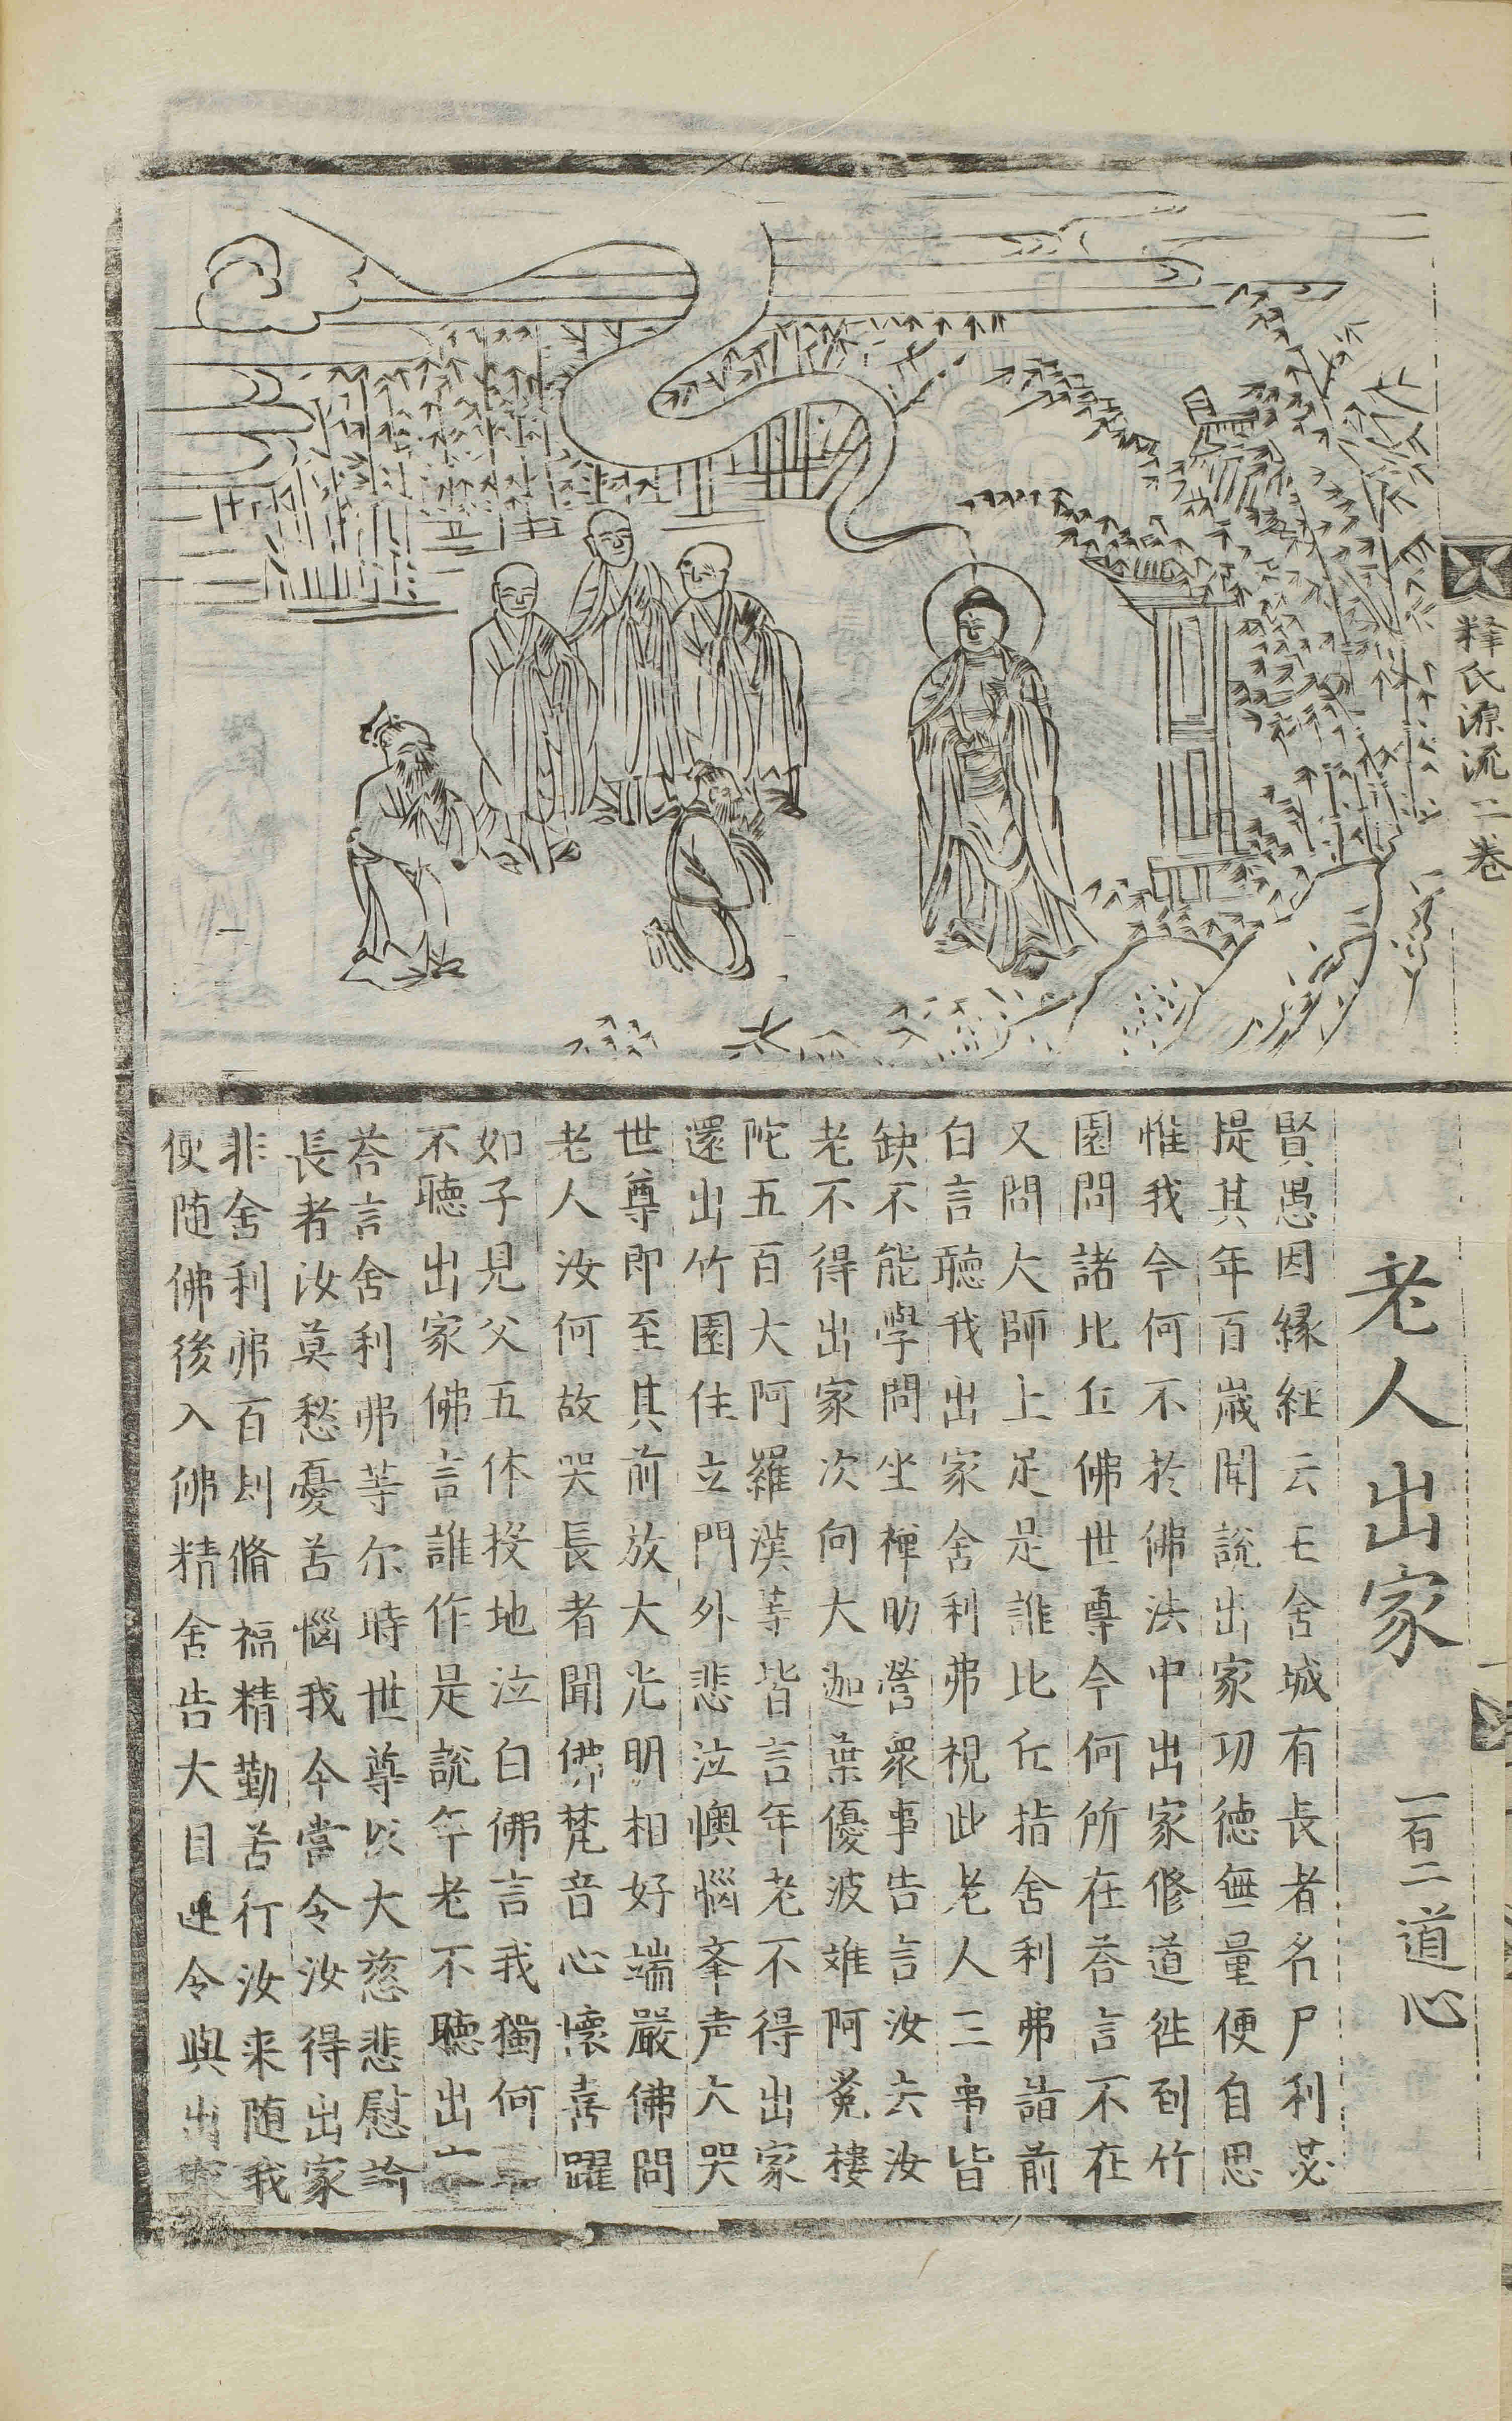 釋氏源流二卷
老人出家
一百二道心
賢愚因縁經云王舍城有長者名尸利苾
提其年百歲聞說出家功德無量便自思
惟我今何不於佛法中出家修道徃到竹
園問諸比丘佛世尊今何所在荅言不在
又問大師上足是誰比丘指舍利弗詣前
白言聽我出家舍利弗視此老人三事皆
缺不能學問坐禪助營衆事告言汝去汝
老不得出家次向大迦葉優波難阿㝹樓
陀五百大阿羅漢等皆言年老不得出家
還出竹園住立門外悲泣懊惱峯声大哭
世尊即至其前放大光明相好端嚴佛問
老人汝何故哭長者聞佛梵音心懷喜躍
如子見父五体投地泣白佛言我獨何
不聽出家佛言誰作是說年老不聽出家
荅言舍利弗等尔時世尊以大慈悲慰諭
長者汝莫愁憂苦惱我今當令汝得出家
非舍利弗百刦脩福精勤苦行汝来随我
便随佛後入佛精舍告大目連令與出家